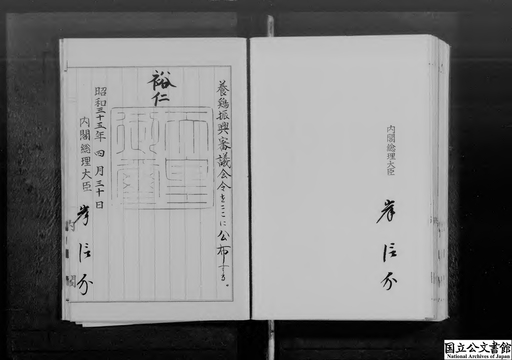 養鶏振興審議会令をここに公布する。
裕仁
天皇御璽
昭和三十五年四月三十日
内閣総理大臣
岸信介
内閣総理大臣
岸信介
国立公文書館
National Archives of Japan